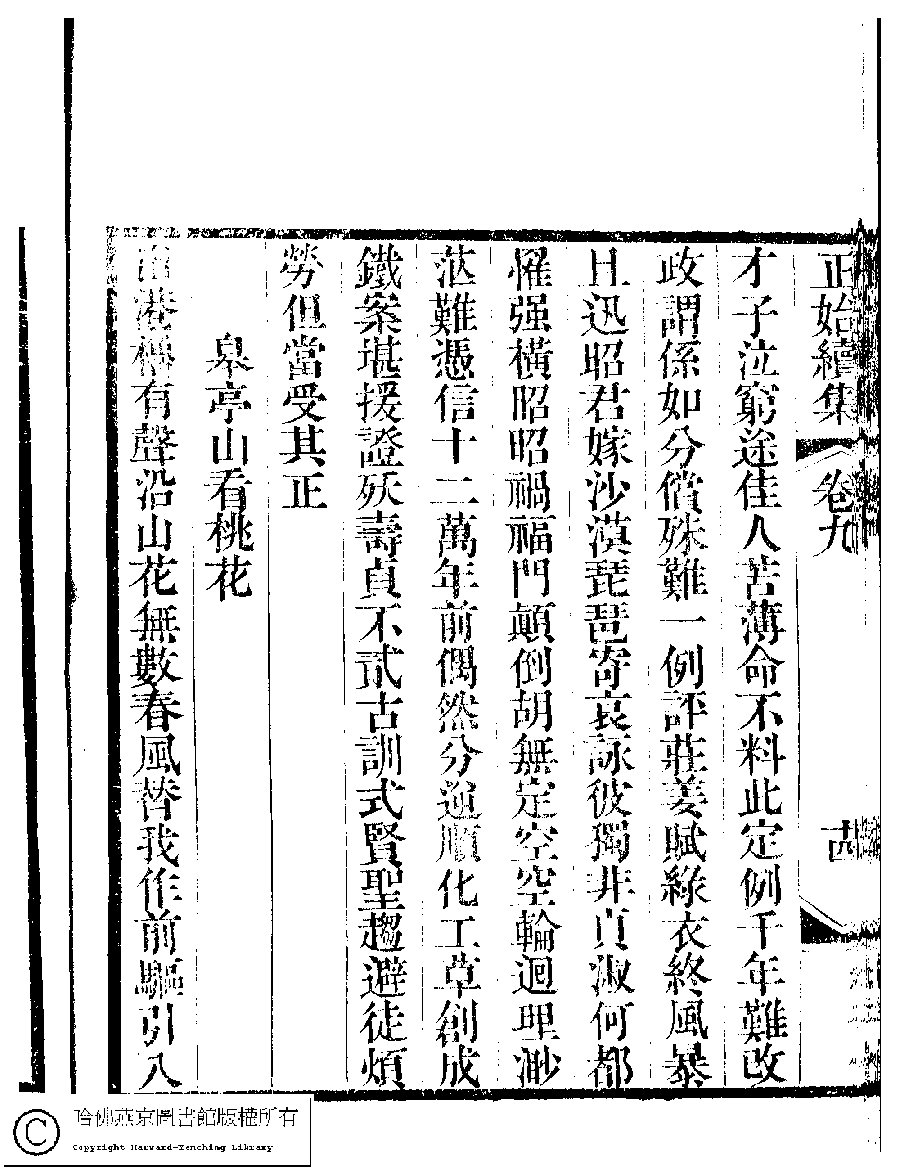 正始續集 卷九 十四
才子泣窮途佳人苦薄命不料此定例千年難改
政謂係如分償殊難一例評莊姜賦綠衣終風暴
且迅昭君嫁沙漠琵琶寄哀詠彼獨非貞淑何都
罹强橫昭昭禍福門顛倒胡無定空空輪迴理渺
茫難憑信十二萬年前偶然分逆順化工草創成
鐵案堪援證殀壽貞不貳古訓式賢聖趨避徒煩
勞但當受其正
皋亭山看桃花
港櫓有聲沿山花無數春風替我作前驅引入
哈佛燕京圖書館版權所有
Copyright Harvard-Yenching Library